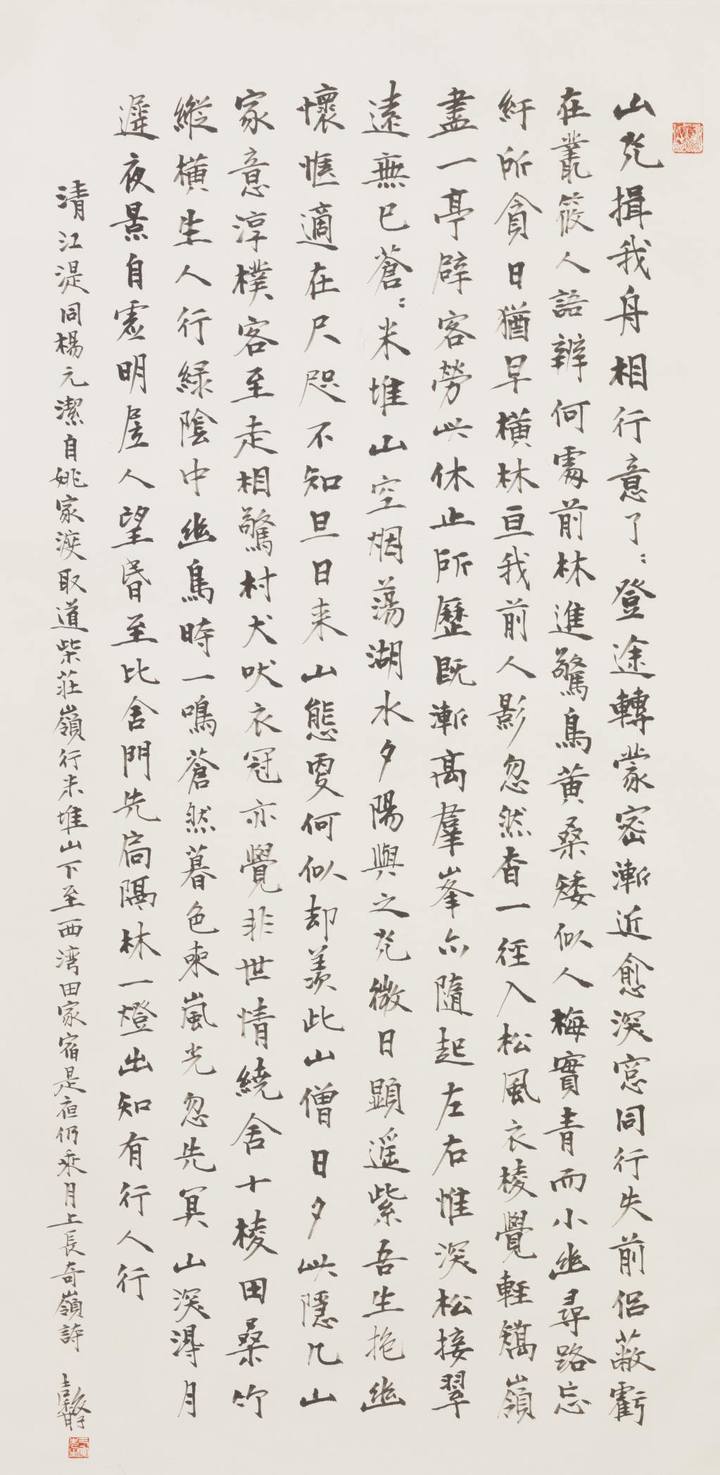 山光揖我舟相行意了:登途轉蒙密漸近愈深窓同行失前侶蔽虧
在叢筱人語辨何處前林進驚鳥黄桑矮似人梅實青而小幽尋路忘
紆所貪日猶早橫林亘我前人影忽然杳一徑入松風衣棱覺輕嶺
盡一亭辟客勞此休止所歷既漸高羣峯亦隨起左右惟深松接翠
遠無已蒼:米堆山空烟蕩湖水夕陽與之光微日顯遥紫吾生抱幽
懷愜適在尺咫不知旦日来山態更何似却羡此山僧日夕此隱几山
家意淳樸客至走相驚村犬吠衣冠亦覺非世情繞舍十棱田桑竹
縱橫生人行緑陰中幽鳥時一鳴蒼然暮色東嵐光忽先冥山深得月
遲夜景自虛明居人望昏至比舍門先扃隔林一燈出知有行人行
清江湜同楊元潔自姚家滧取道柴莊嶺行米堆山下至西湾田家宿是夜仍乘月上長奇嶺詩